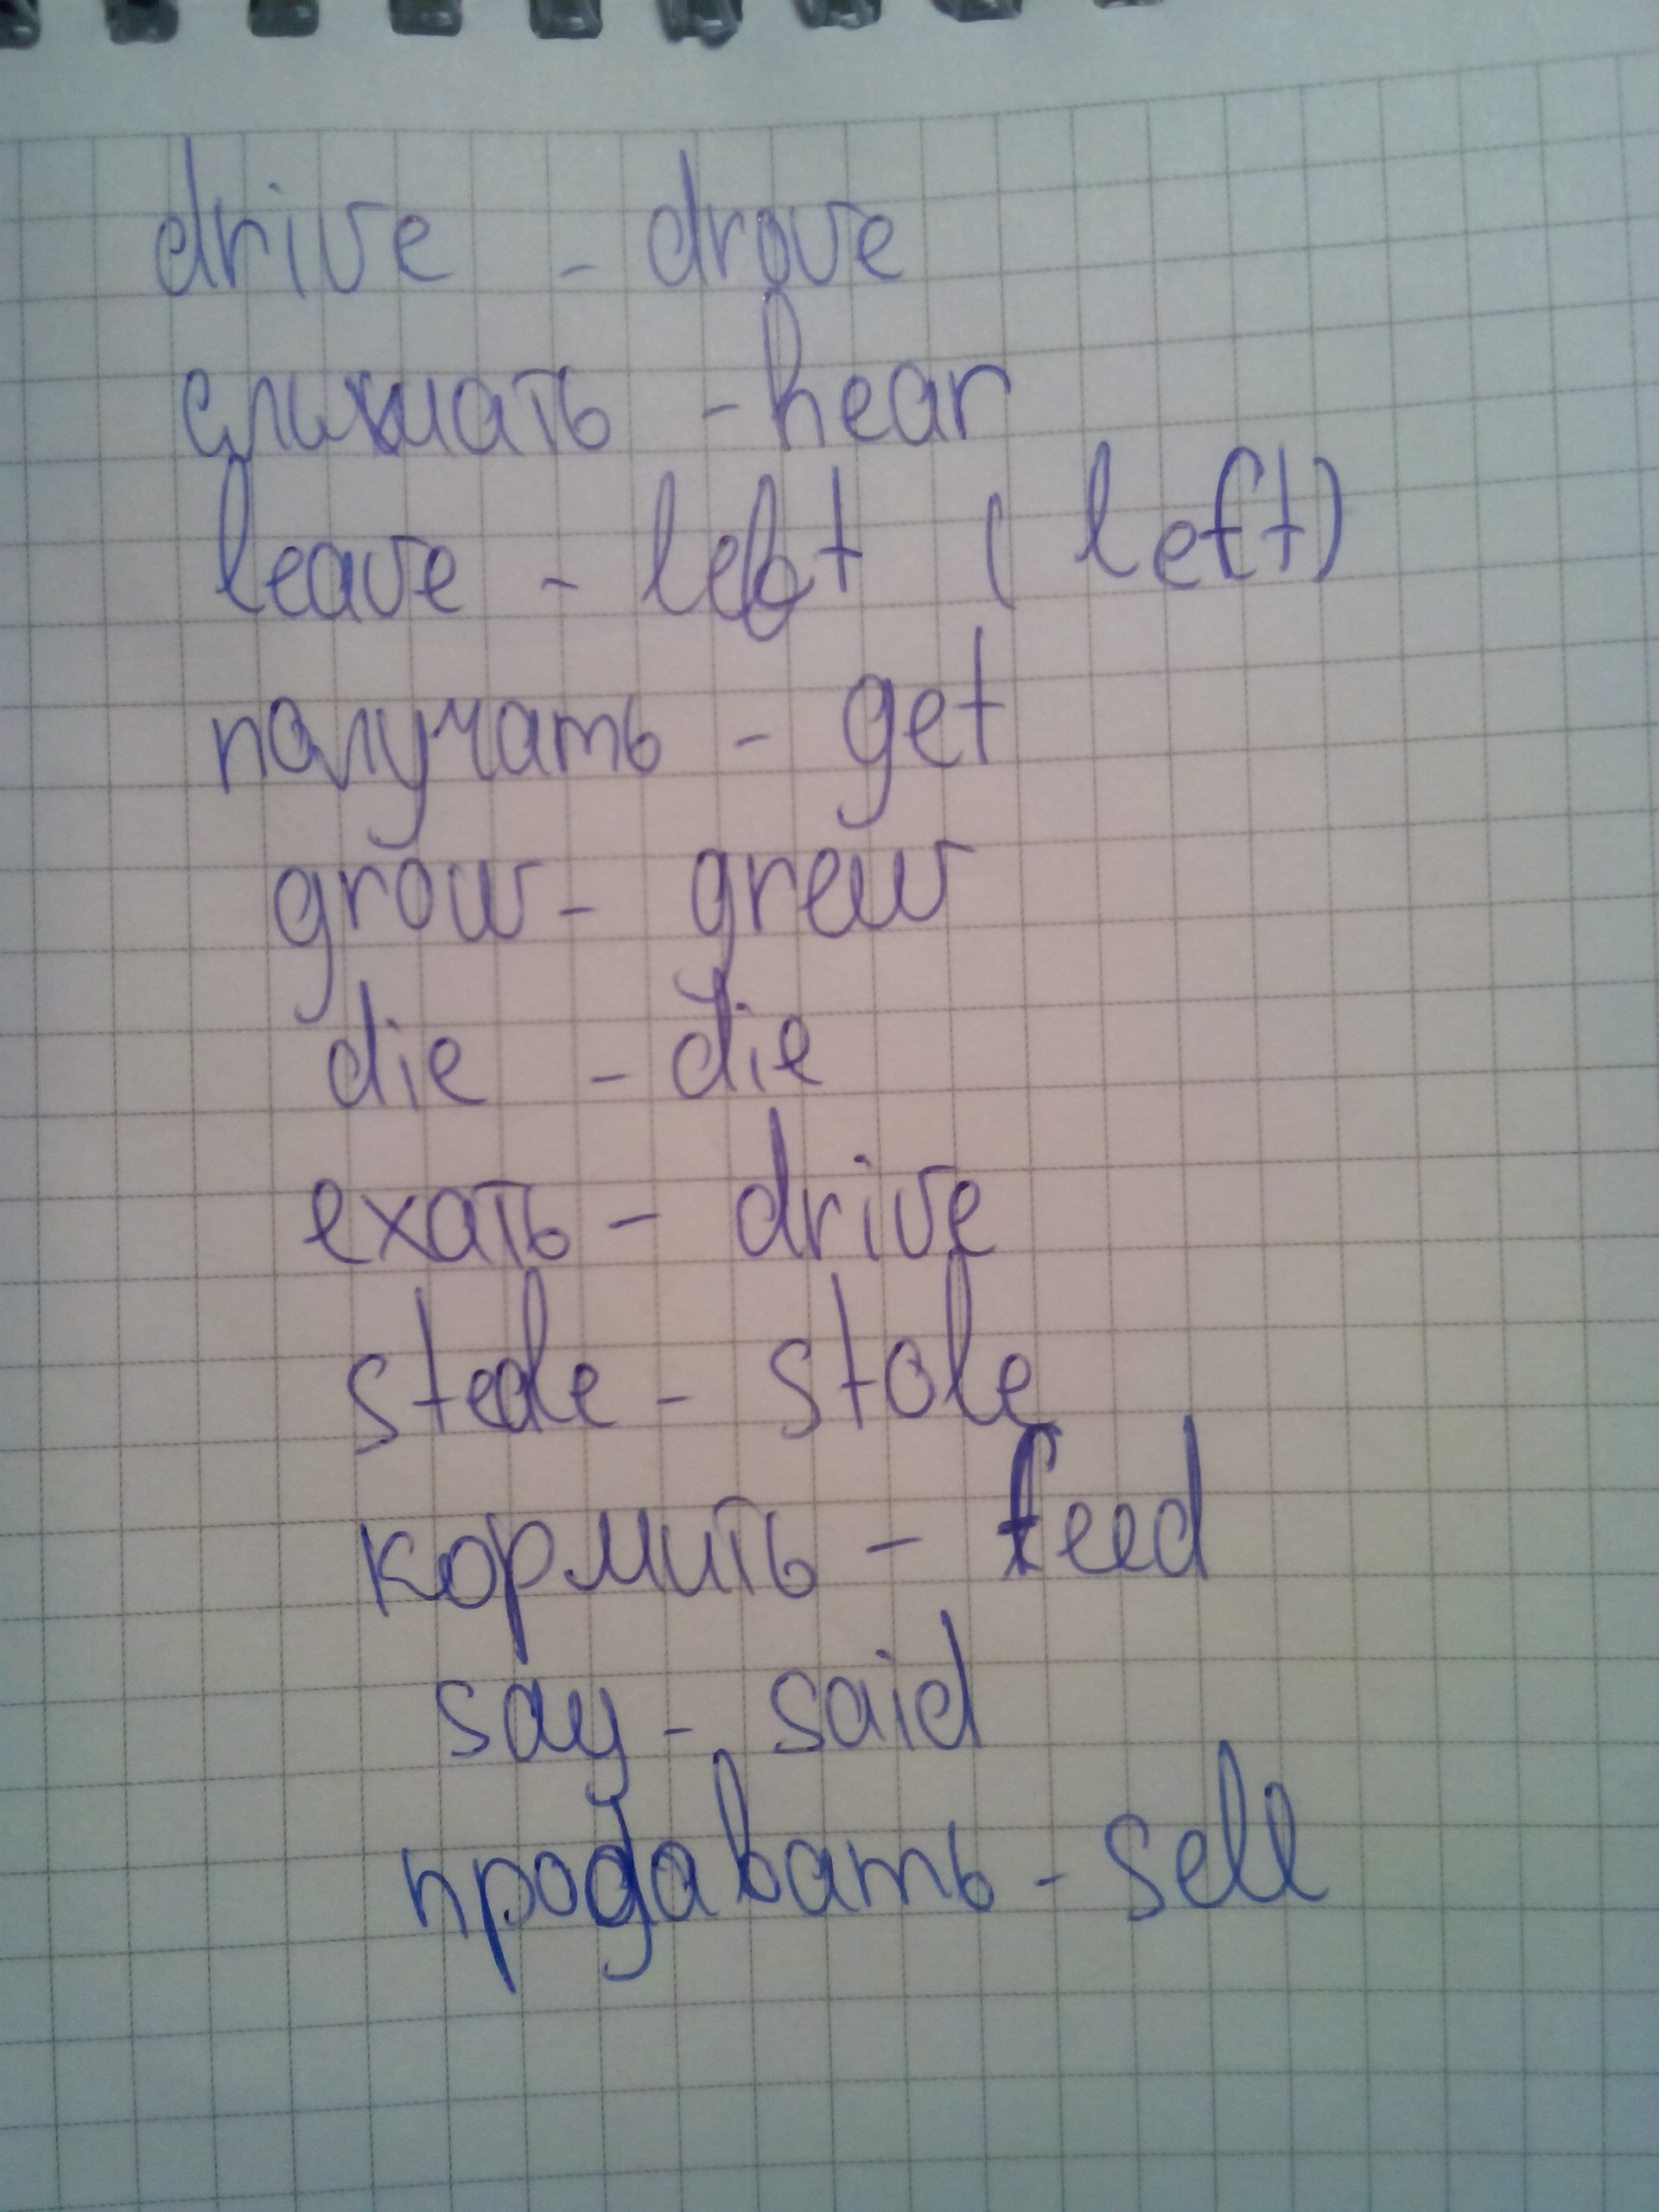 drive - drove
слышать - hear
leave - left (left)
получать - get
grow - grew
die - die
ехать - drive
steale - stole
кормить - feed
say - said
продавать - sell